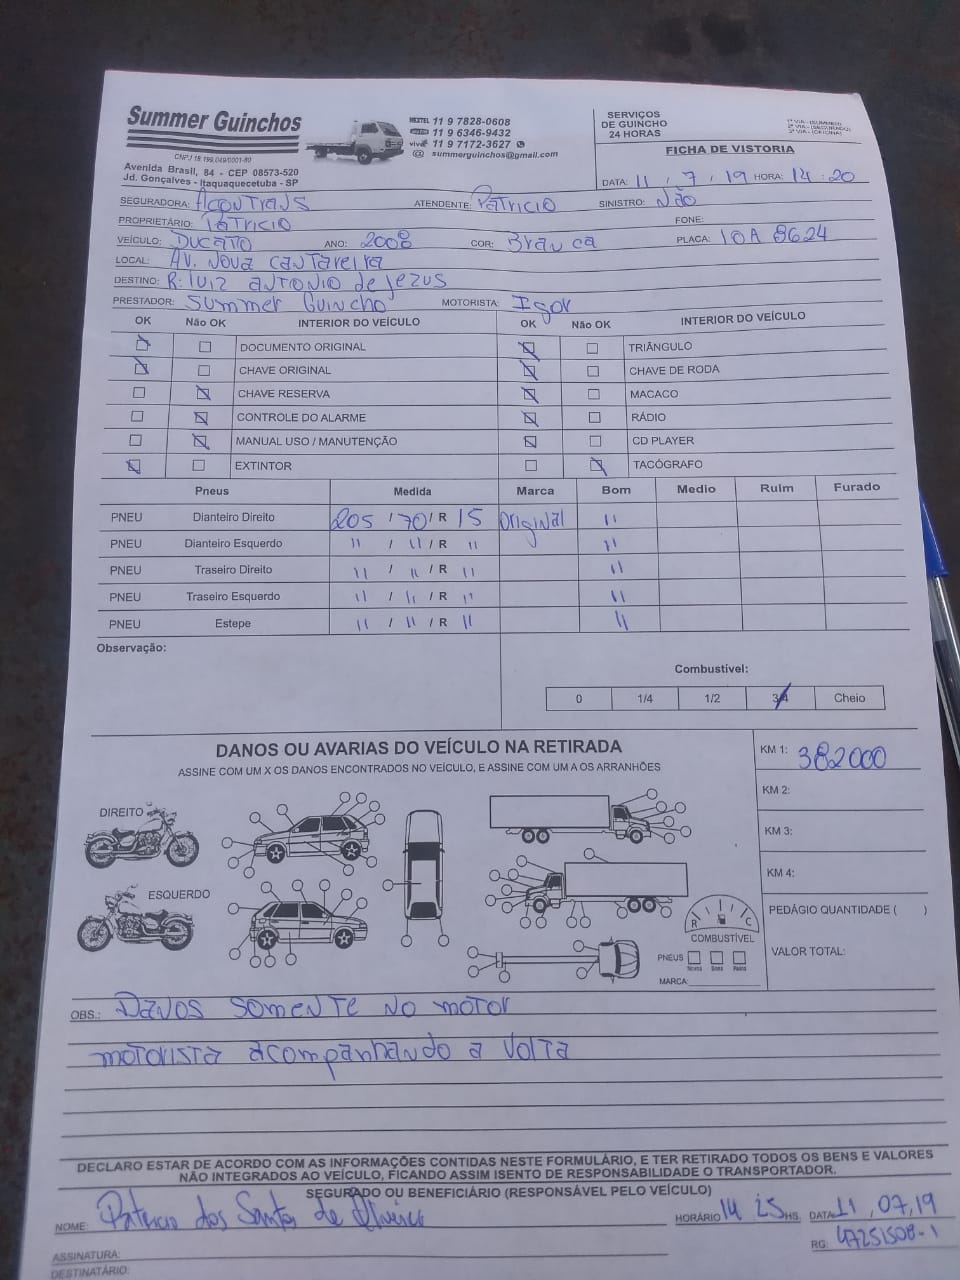 Summer Guinchos
CNPJ 18.199.049/0001-80
Avenida Brasil, 84 - CEP 08573-520
Jd. Gonçalves - Itaquaquecetuba - SP
NEXTEL 11 9 7828-0608
11 9 6346-9432
vivo 11 9 7172-3627
@ summerguinchos@gmail.com
SERVIÇOS
DE GUINCHO
24 HORAS
1ª VIA - (SUMMER)
2ª VIA - (SEGURADO)
3ª VIA - (OFICINA)
FICHA DE VISTORIA
DATA: 11 / 7 / 19 HORA: 14:20
SEGURADORA: Acontrans ATENDENTE: Patricio SINISTRO: Não
PROPRIETÁRIO: Patricio FONE:
VEÍCULO: Ducato ANO: 2008 COR: Branca PLACA:
LOCAL: Av. Nova Cantareira
DESTINO: R: Luiz Antonio de Jezus
PRESTADOR: Summer Guincho MOTORISTA: Igor
OK Não OK INTERIOR DO VEÍCULO OK Não OK INTERIOR DO VEÍCULO
DOCUMENTO ORIGINAL TRIÂNGULO
CHAVE ORIGINAL CHAVE DE RODA
CHAVE RESERVA MACACO
CONTROLE DO ALARME RÁDIO
MANUAL USO / MANUTENÇÃO CD PLAYER
EXTINTOR TACÓGRAFO
Pneus Medida Marca Bom Medio Ruim Furado
PNEU Dianteiro Direito 205 / 70 / R 15 Original 11
PNEU Dianteiro Esquerdo 11 / 11 / R 11 11
PNEU Traseiro Direito 11 / 11 / R 11 11
PNEU Traseiro Esquerdo 11 / 11 / R 11 11
PNEU Estepe 11 / 11 / R 11 11
Observação:
Combustível:
0 1/4 1/2 3/4 Cheio
DANOS OU AVARIAS DO VEÍCULO NA RETIRADA
ASSINE COM UM X OS DANOS ENCONTRADOS NO VEÍCULO, E ASSINE COM UM A OS ARRANHÕES
KM 1: 382000
KM 2:
KM 3:
KM 4:
PEDÁGIO QUANTIDADE ( )
VALOR TOTAL:
DIREITO
ESQUERDO
R C
COMBUSTÍVEL
PNEUS
MARCA:
OBS.: Danos somente no motor
motorista acompanhando a volta
DECLARO ESTAR DE ACORDO COM AS INFORMAÇÕES CONTIDAS NESTE FORMULÁRIO, E TER RETIRADO TODOS OS BENS E VALORES
NÃO INTEGRADOS AO VEÍCULO, FICANDO ASSIM ISENTO DE RESPONSABILIDADE O TRANSPORTADOR.
SEGURADO OU BENEFICIÁRIO (RESPONSÁVEL PELO VEÍCULO)
NOME: Patricio dos Santos de Oliveira HORÁRIO 14 25 HS. DATA 11,07,19
RG: 47251508-1
ASSINATURA:
DESTINATÁRIO: